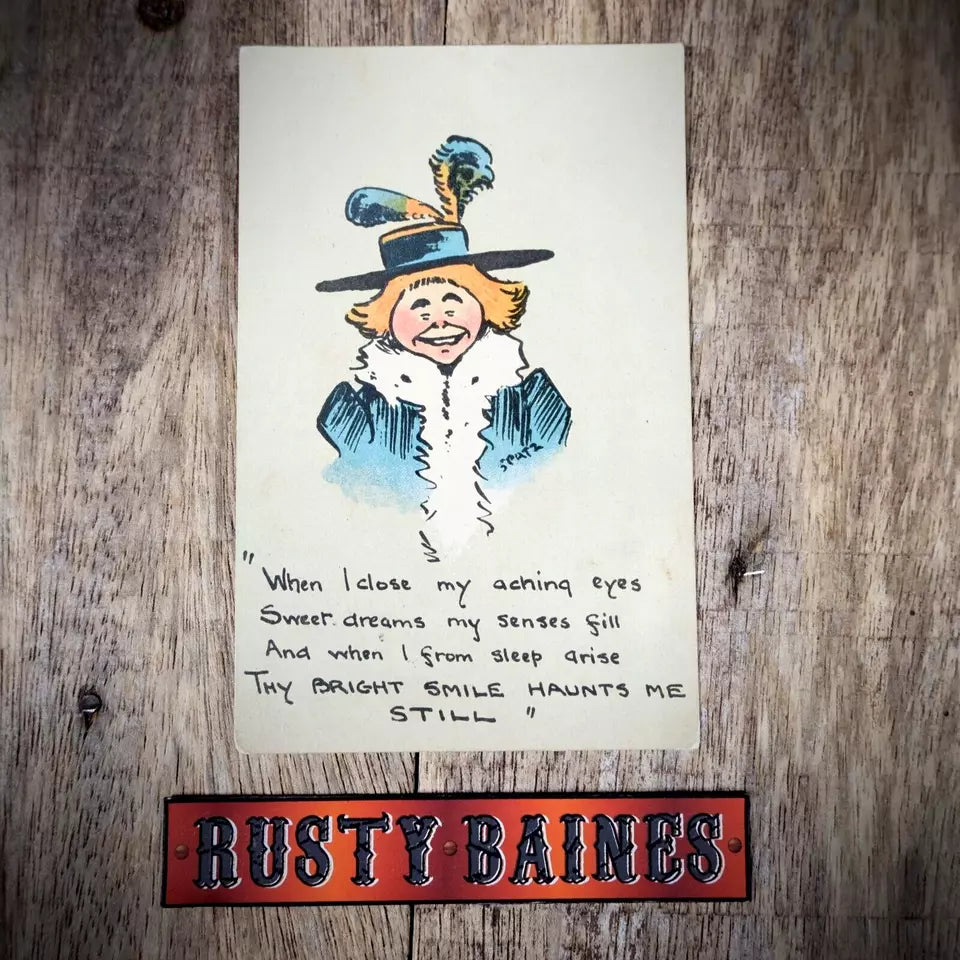 SPATZ
" When I close my aching eyes
Sweet dreams my senses fill
And when I from sleep arise
THY BRIGHT SMILE HAUNTS ME
STILL "
RUSTY BAINES